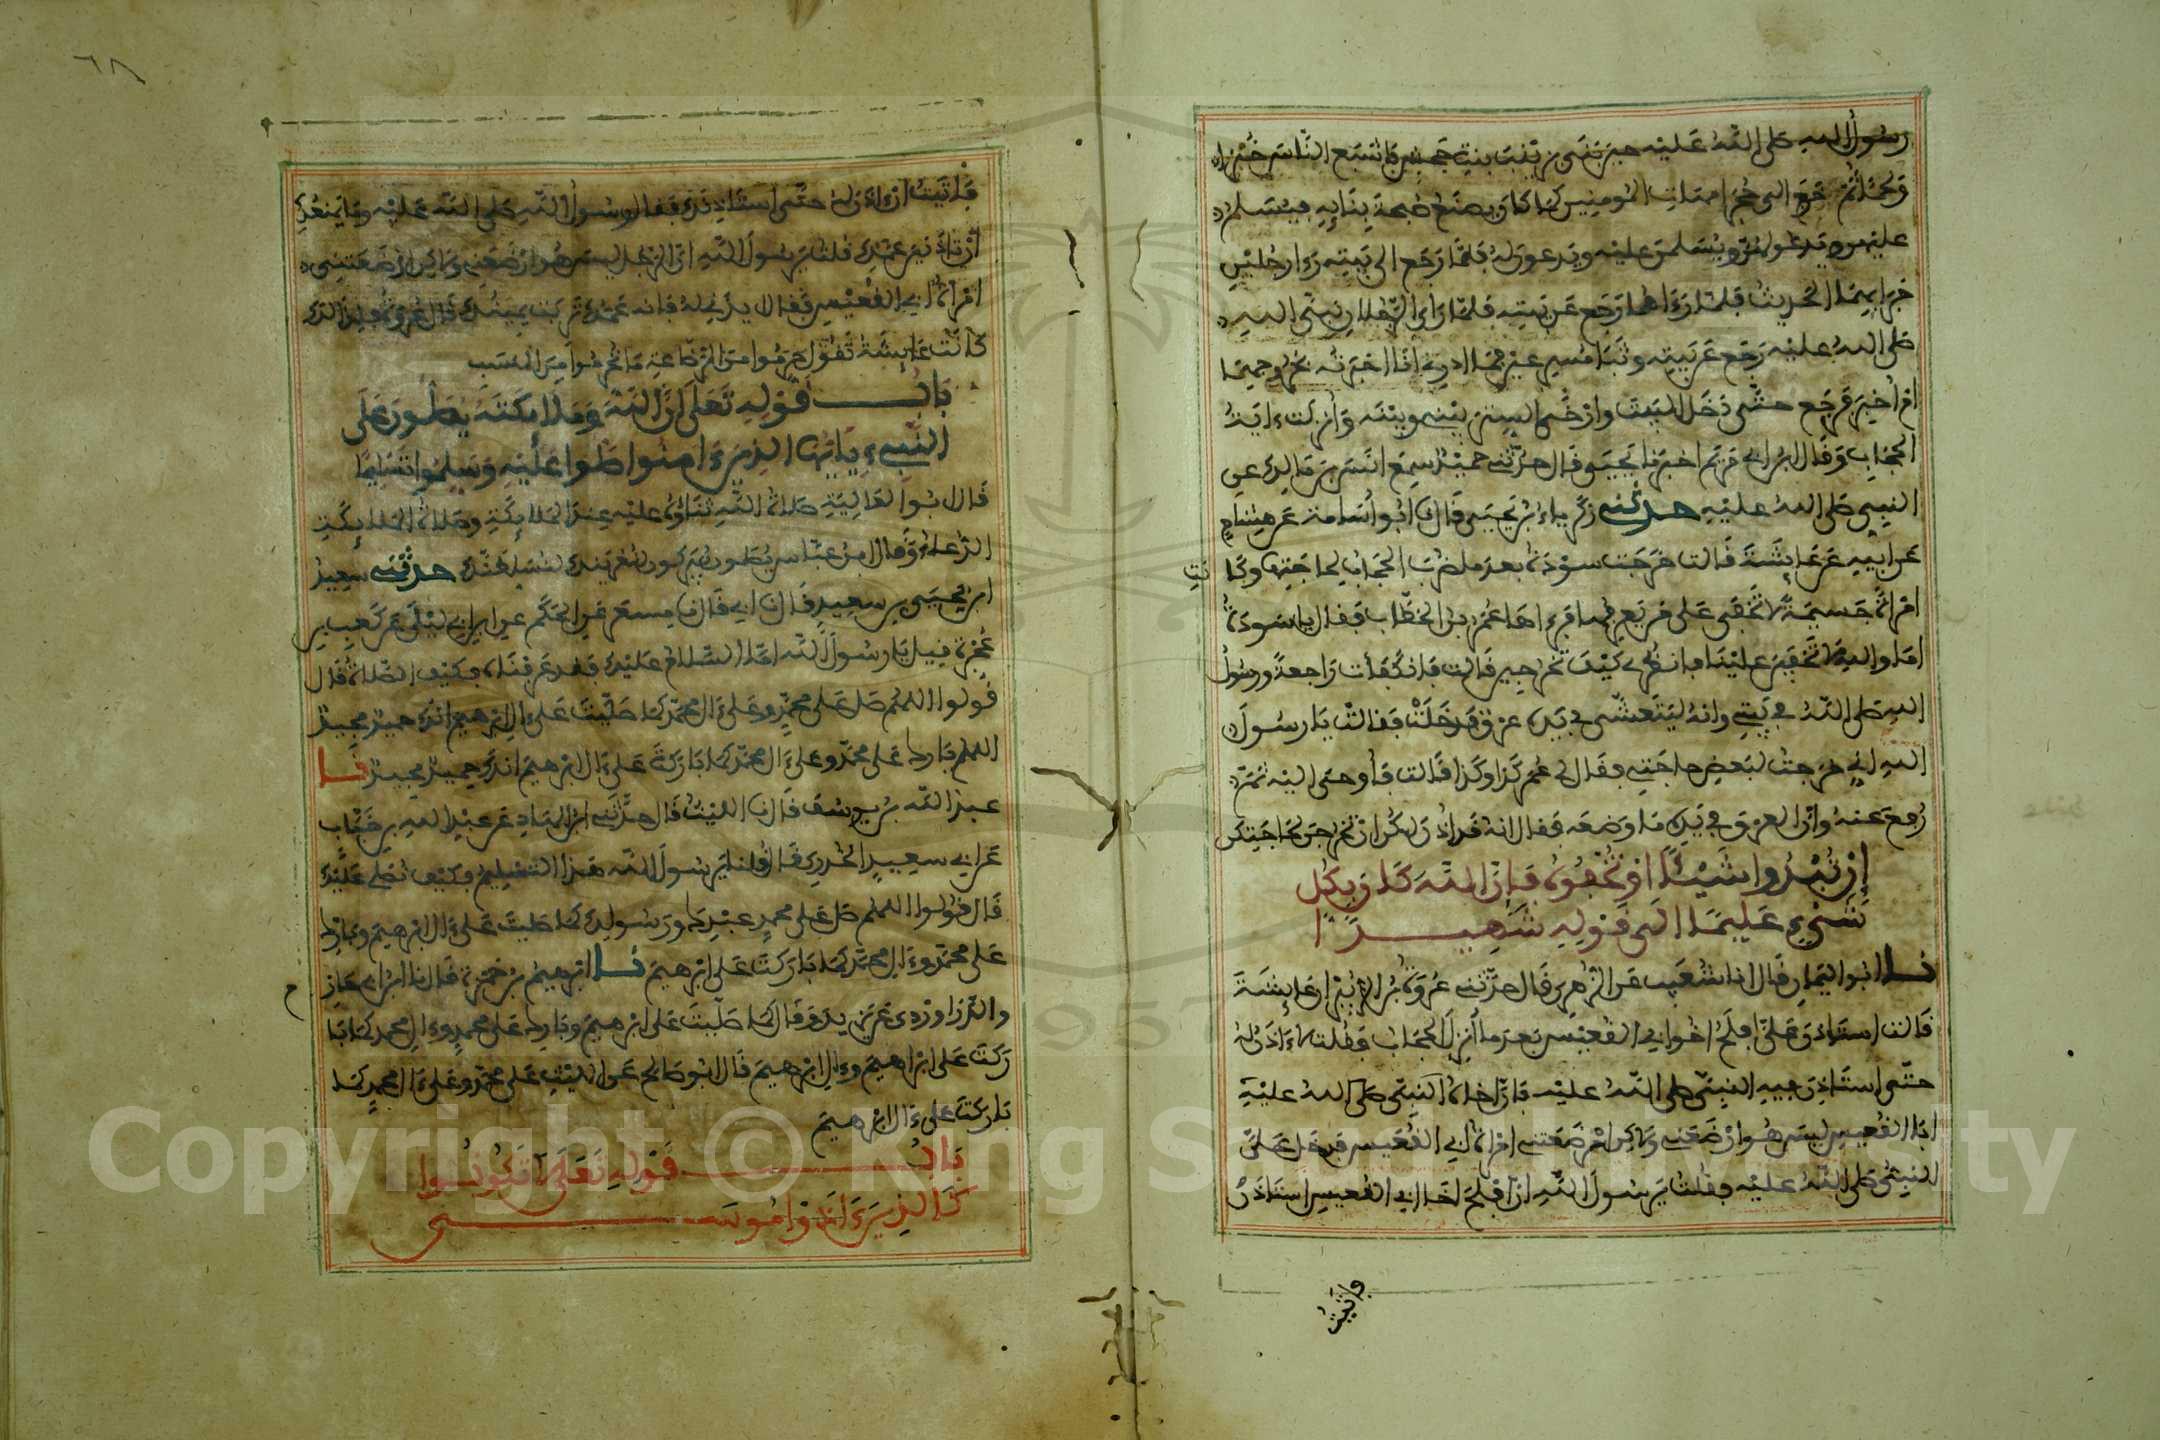 رسول الله صلى الله عليه حين بنى بزينب بنت جحش فاشبع الناس خبزا
ولحما ثم خرج الى حجر امهات المومنين كما كان يصنع صبيحة بنايه فيسلم
عليهن ويدعو لهن ويسلمن عليه ويدعون له فلما رجع الى بيته رءا رجلين
جرى بهما الحديث فلما رءاهما رجع عن بيته فلما راى الرجلان نبي الله
صلى الله عليه رجع عن بيته وثبا مسرعين فما ادري انا اخبرته بخروجهما
ام اخبر فرجع حتى دخل البيت وارخى الستر بيني وبينه وانزلت ءاية
الحجاب وقال ابن ابي مريم اخبرنا يحيى قال حدثني حميد سمع انس بن مالك عن
النبي صلى الله عليه حدثني زكرياء بن يحيى قال نا ابو اسامة عن هشام
عن ابيه عن عايشة قالت خرجت سودة بعد ما ضرب الحجاب لحاجتها وكا
نت
امراة جسيمة لا تخفى على من يعرفها فرءاها عمر بن الخطاب فقال يا سودة
اما والله ما تخفين علينا فانظري كيف تخرجين قالت فانكفأت راجعة ورسول
الله صلى الله في بيتي وانه ليتعشى في يده عرق فدخلت فقالت يا رسول
الله اني خرجت لبعض حاجتي فقال لي عمر كذا وكذا قالت فأوحى اليه ثم
رفع عنه وان العرق في يده ما وضعه فقال انه قد اذن لكن ان تخرجن لحاجتكن
إن تبدوا شيئا او تخفوه فإن الله كان بكل
شيء عليما الى قوله شهيدا
نا ابو اليمان قال انا شعيب عن الزهري قال حدثني عروة بن الزبير ان عايشة
قالت استاذن علي افلح اخو ابي القعيس بعد ما أنزل الحجاب فقلت لا ءاذن له
حتى استاذن فيه النبي صلى الله عليه فان اخاه النبي صلى الله عليه
ابا القعيس ليس هو ارضعني ولاكن ارضعتني امراة ابي القعيس فدخل علي
النبي صلى الله عليه فقلت يرسول الله ان افلح اخا ابي القعيس استاذن
فابيت
٦٨
فابيت ان ءاذن له حتى استاذنك فقال رسول الله صلى الله عليه وما يمنعك
ان تاذنين عمك قلت يرسول الله ان الرجل ليس هو ارضعني ولاكن ارضعتني
امراة ابي القعيس فقال ايذني له فانه عمك تربت يمينك قال عروة فلذالك
كانت عايشة تقول حرموا من الرضاعة ما تحرموا من النسب
باب قوله تعلى ان الله وملائكته يصلون على
النبيء يايها الذين ءامنوا صلوا عليه وسلموا تسليما
قال ابو العالية صلاة الله ثناؤه عليه عند الملايكة وصلاة الملايكة
الدعاء وقال ابن عباس يصلون يبركون لنغرينك لنسلطنك حدثني سعيد
ابن يحيى بن سعيد قال نا ابي قال نا مسعر عن الحكم عن ابن ابي ليلى عن كعب بن
عجرة قيل يا رسول الله اما السلام عليك فقد عرفناه فكيف الصلاة قال
قولوا اللهم صل على محمد وعلى ءال محمد كما صليت على ءال ابرهيم انك حميد مجيد
اللهم بارك على محمد وعلى ءال محمد كما باركت على ءال ابرهيم انك حميد مجيد نا
عبد الله بن يوسف قال نا الليث قال حدثني ابن الهاد عن عبد الله بن خباب
عن ابي سعيد الخدري قال قلنا يرسول الله هذا التسليم فكيف نصلي عليك
قال قولوا اللهم صل على محمد عبدك ورسولك كما صليت على ءال ابرهيم وبارك
على محمد وءال محمد كما باركت على ابرهيم نا ابرهيم بن حمزة قال نا ابن ابي حازم
والدراوردي عن يزيد وقال كما صليت على ابرهيم وبارك على محمد وءال محمد كما با
ركت على ابراهيم وءال ابرهيم قال ابو صالح عن الليث على محمد وعلى ءال محمد كما
باركت على ءال ابرهيم
باب قوله تعلى لا تكونوا
كالذين ءاذوا موسى
Copyright © King Saud University
1957